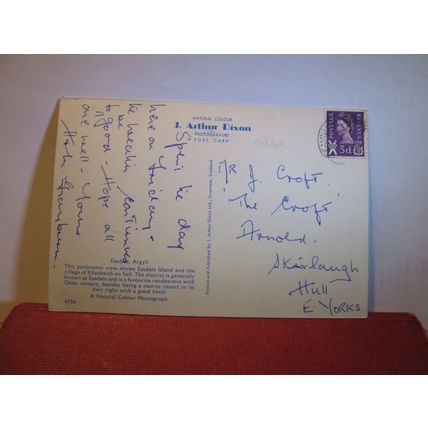 NATURAL COLOUR
J. Arthur Dixon
PHOTOGRAVURE
POST CARD
the day
here on Friday -
be
to good - Hope all
are well - Yours
J. Croft.
The Croft
Arnold.
Skirlaugh
Hull
E YORKS
POSTAGE
REVENUE
3d
Easdale, Argyll
This panoramic view shows Easdale Island and the
village of Ellenbeich on Seil. The district is generally
known as Easdale and is a favourite rendezvous with
Oban visitors, besides being a tourist resort in its
own right with a good hotel
A Natural Colour Photograph
4156
Printed and Published by J. Arthur Dixon Ltd., Inverness, Scotland